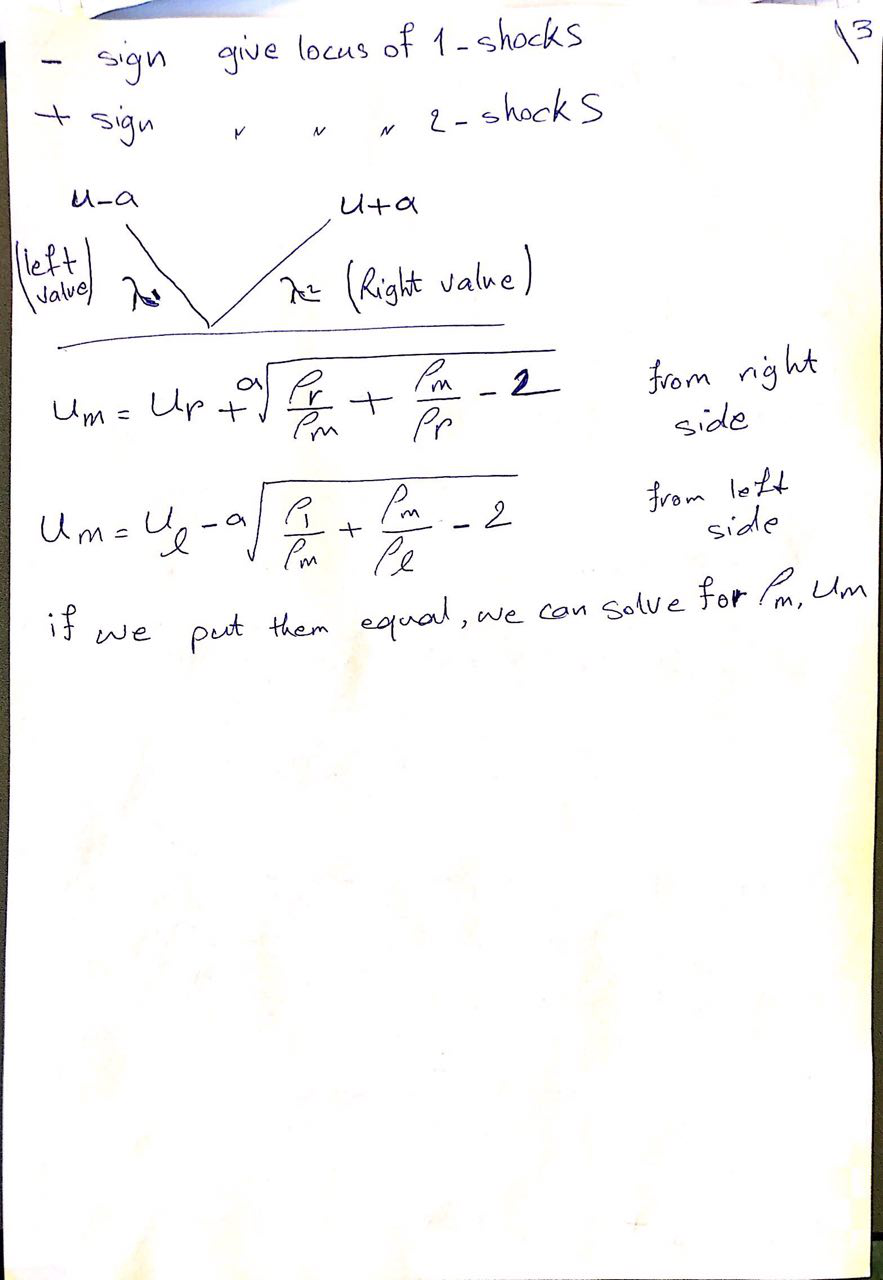 13
- sign give locus of 1-shocks
+ sign 〃 〃 〃 2-shocks
u-a u+a
(left value) λ1 λ2 (Right value)
u_m = u_r + a√(ρ_r/ρ_m + ρ_m/ρ_r - 2) from right side
u_m = u_l - a√(ρ_l/ρ_m + ρ_m/ρ_l - 2) from left side
if we put them equal, we can solve for ρ_m, u_m